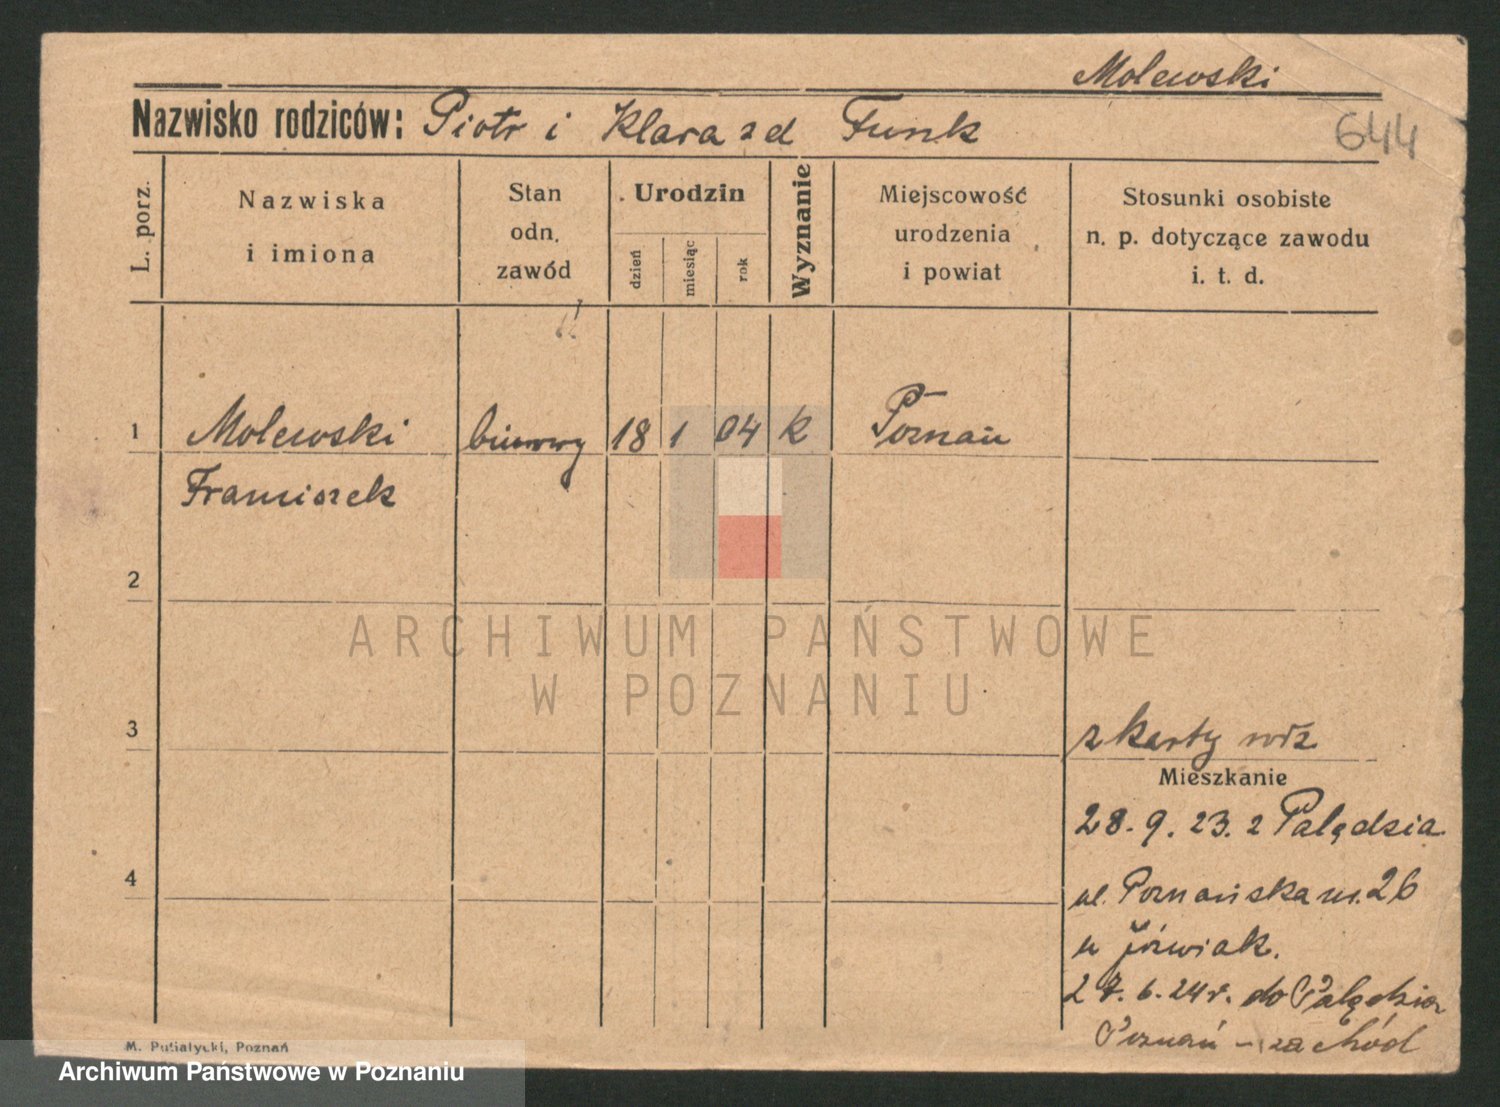 Molewski
Nazwisko rodziców: Piotr i Klara zd Funk
644
L. porz.
Nazwiska
i imiona
Stan
odn.
zawód
Urodzin
dzień
miesiąc
rok
Wyznanie
Miejscowość
urodzenia
i powiat
Stosunki osobiste
n. p. dotyczące zawodu
i. t. d.
1 Molewski biurowy 18 1 04 k Poznań
Franciszek
2
ARCHIWUM PAŃSTWOWE
W POZNANIU
3
z karty rodz
Mieszkanie
28. 9. 23. z Palędzia
4
ul. Poznańska 26
u Jóźwiak.
27. 6. 24 r. do Palędzia
Poznań - zachód
M. Putiatycki, Poznań
Archiwum Państwowe w Poznaniu